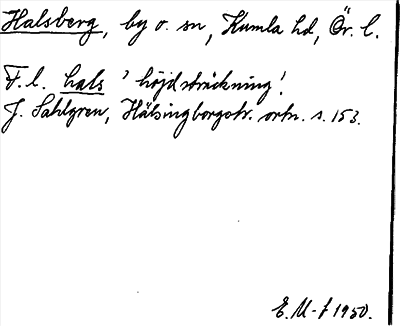 Halsberg, by o. sn, Kumla hd, Ör. l.
F. l. hals 'höjdsträckning'.
J. Sahlgren, Hälsingborgstr. ortn. s. 153.
E. M-f 1950.